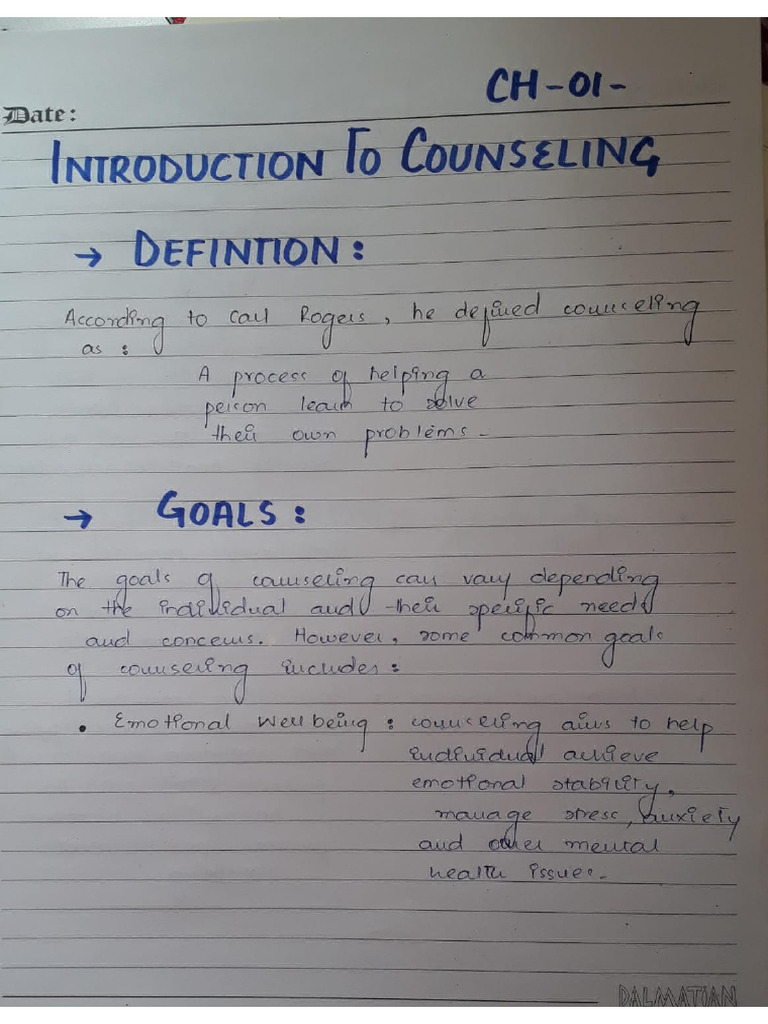 CH-01-
Date:
INTRODUCTION TO COUNSELING
→ DEFINTION:
According to Carl Rogers, he defined counceling
as :
A process of helping a
person learn to solve
their own problems.
→ GOALS:
The goals of counseling can vary depending
on the individual and their specific needs
and concerns. However, some common goals
of counseling includes:
• Emotional Well being : counceling aims to help
individual achieve
emotional stability,
manage stress, anxiety
and other mental
health issues.
DALMATIAN